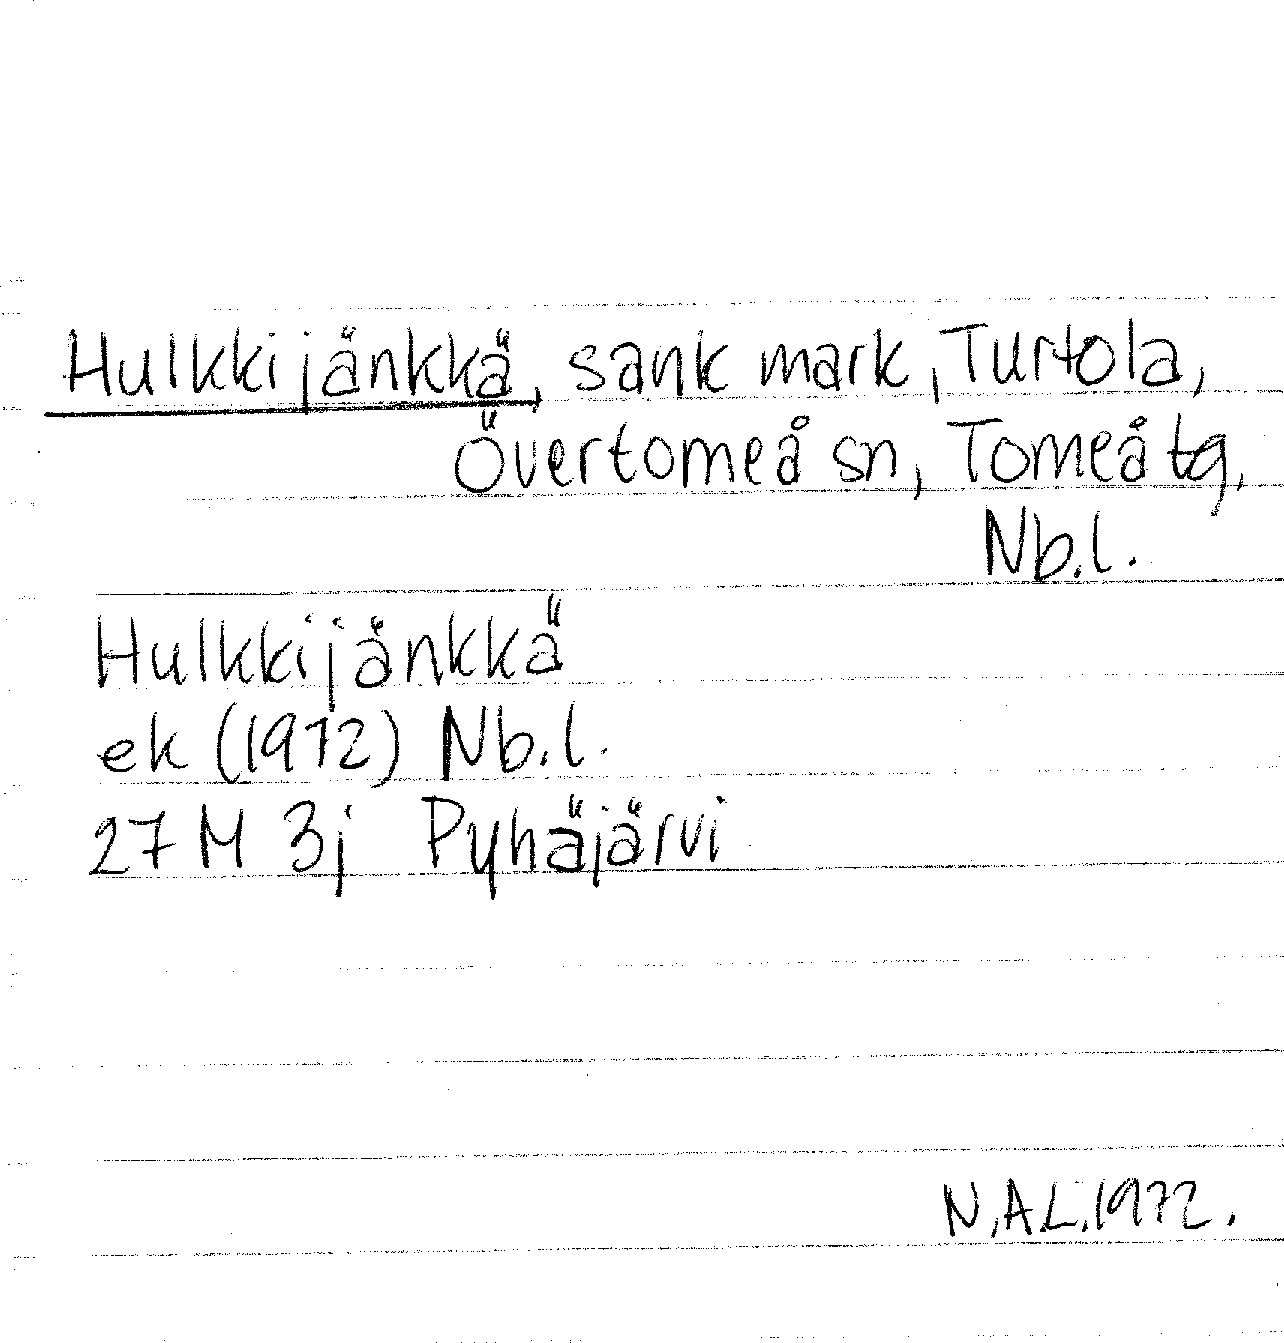 Hulkkijänkkä, sank mark, Turtola,
Övertorneå sn, Torneå tg,
Nb.l.
Hulkkijänkkä
ek (1972) Nb.l.
27 M 3j Pyhäjärvi
N.A.L. 1972.